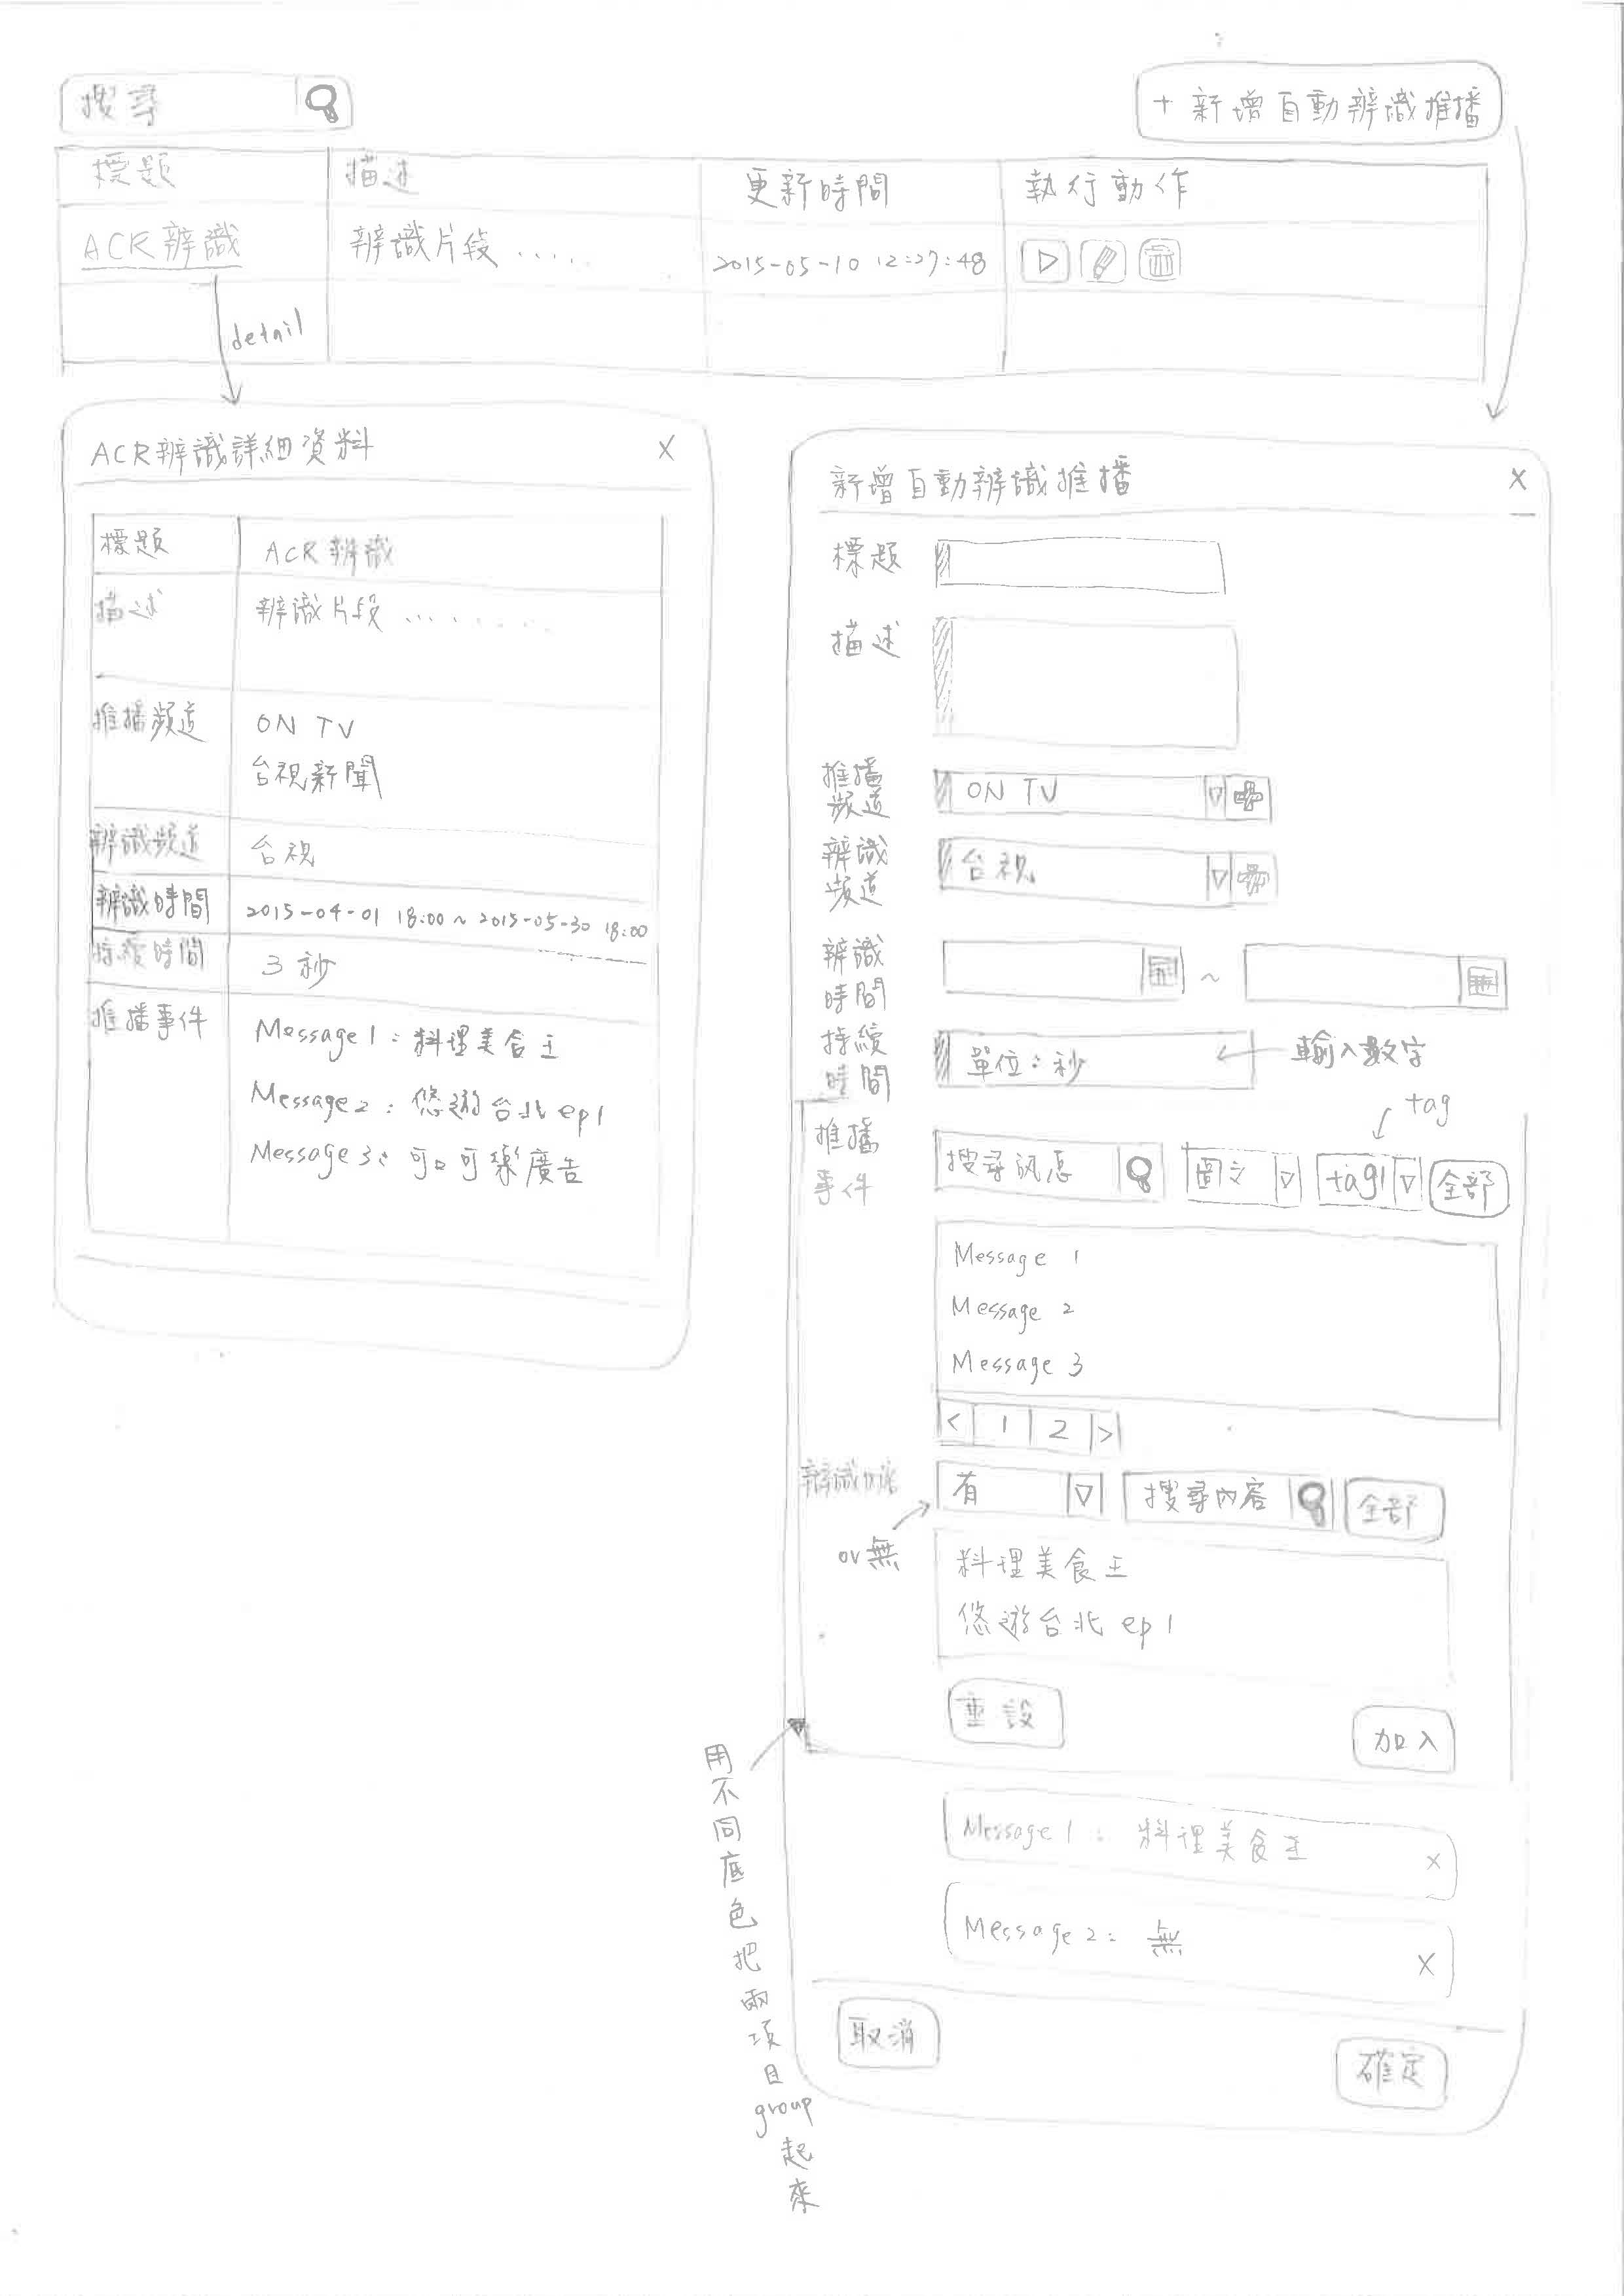 搜尋
+ 新增自動辨識推播
標題 描述 更新時間 執行動作
ACR 辨識 辨識片段 ..... 2015-05-10 12:27:48
detail
ACR辨識詳細資料 X
標題 ACR 辨識
描述 辨識片段 ........
推播頻道 ON TV
台視新聞
辨識頻道 台視
辨識時間 2015-04-01 18:00 ~ 2015-05-30 18:00
持續時間 3 秒
推播事件 Message 1 : 料理美食王
Message 2 : 悠遊台北 ep1
Message 3 : 可口可樂廣告
新增自動辨識推播 X
標題
描述
推播
頻道 ON TV
辨識
頻道 台視
辨識
時間 ~
持續
時間 單位:秒 ← 輸入數字
tag
推播
事件 搜尋訊息 圖文 tag1 全部
Message 1
Message 2
Message 3
< 1 2 >
辨識 有 搜尋內容 全部
or 無
料理美食王
悠遊台北 ep1
重設 加入
用不同底色把兩項目group起來
Message 1 : 料理美食王 X
Message 2 : 無 X
取消 確定